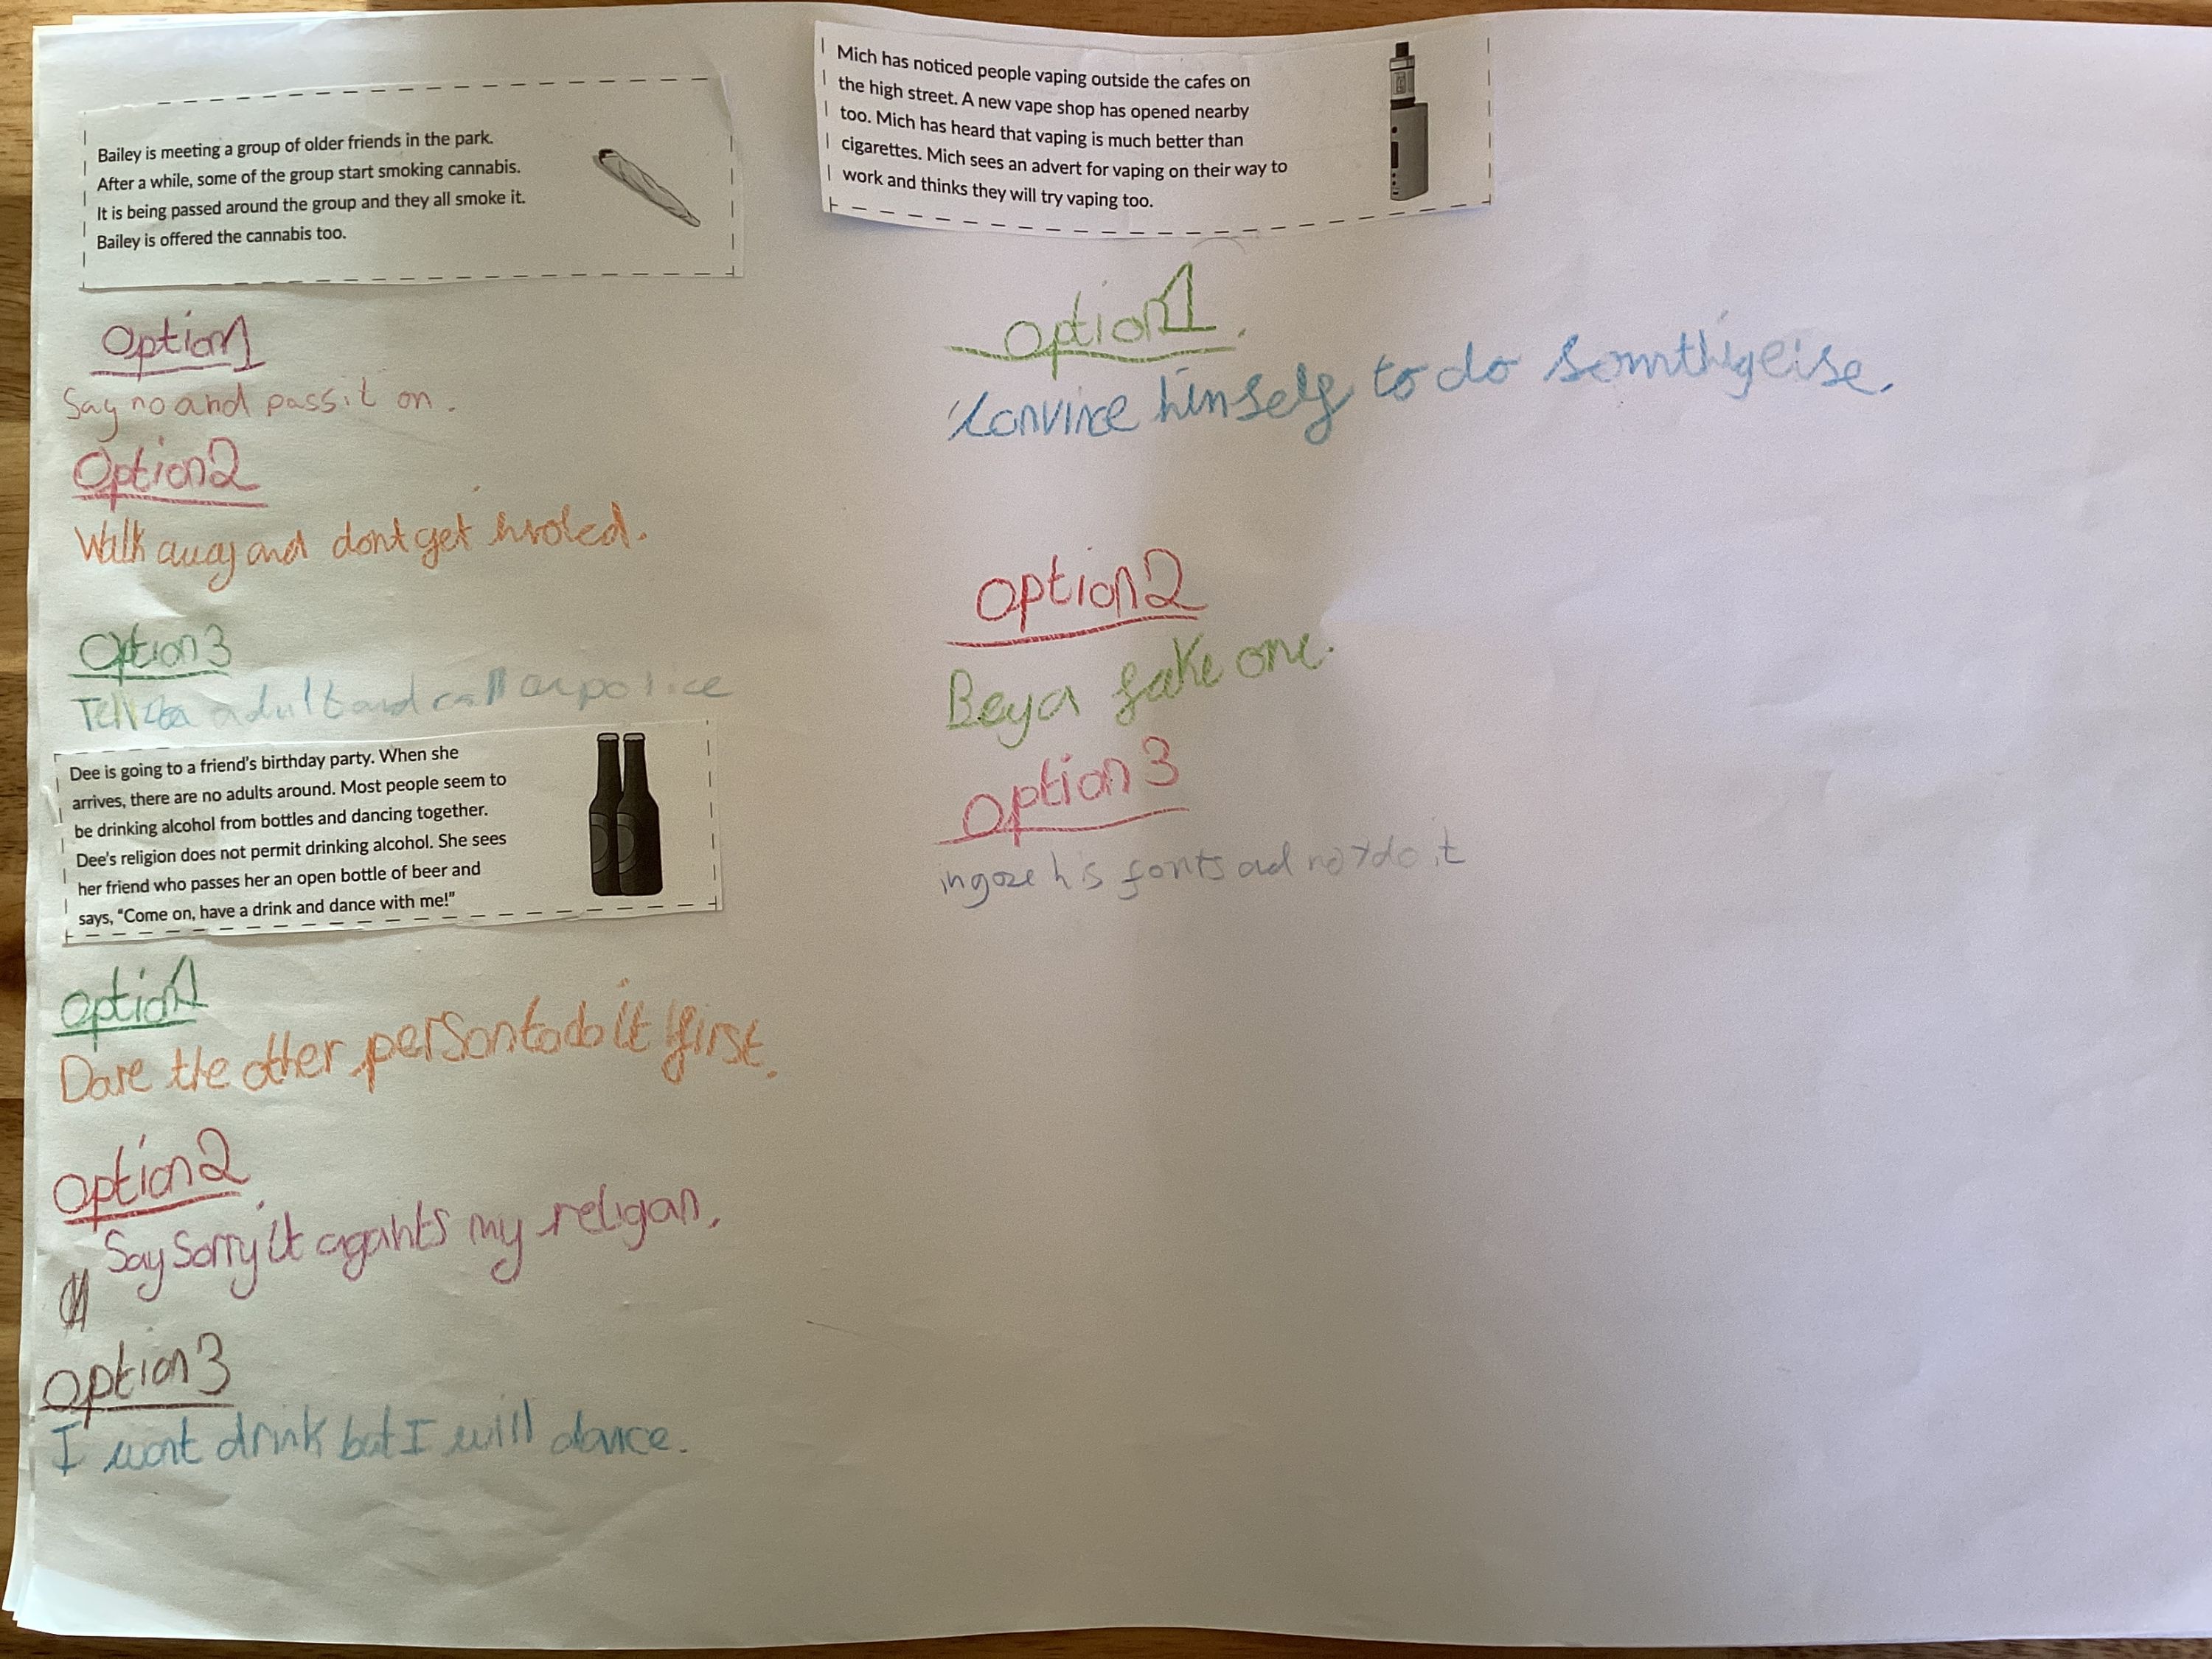 Bailey is meeting a group of older friends in the park.
After a while, some of the group start smoking cannabis.
It is being passed around the group and they all smoke it.
Bailey is offered the cannabis too.
Option1
Say no and pass it on.
Option2
Walk away and dont get
Option3
Tell a adult and call police
Dee is going to a friend's birthday party. When she
arrives, there are no adults around. Most people seem to
be drinking alcohol from bottles and dancing together.
Dee's religion does not permit drinking alcohol. She sees
her friend who passes her an open bottle of beer and
says, "Come on, have a drink and dance with me!"
option1
Dare the other person to do it first.
option2
Say Sorry it agahts my religan.
option3
I wont drink but I will dance.
Mich has noticed people vaping outside the cafes on
the high street. A new vape shop has opened nearby
too. Mich has heard that vaping is much better than
cigarettes. Mich sees an advert for vaping on their way to
work and thinks they will try vaping too.
option1.
himself to do
option2
Bey a fake one.
option3
ingore his fonts ad not do it